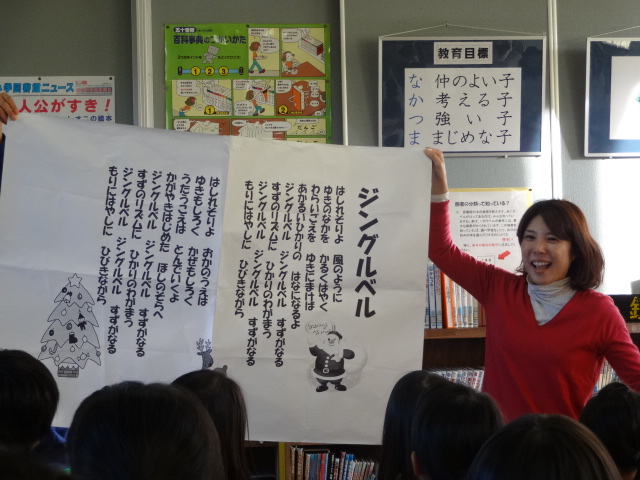 ジングルベル
はしれそりよ 風のように
ゆきのなかを かるくはやく
わらいごえを ゆきにまけば
あかるいひかりの はなになるよ
ジングルベル ジングルベル すずがなる
すずのリズムに ひかりのわがまう
ジングルベル ジングルベル すずがなる
もりにはやしに ひびきながら
はしれそりよ おかのうえは
ゆきもしろく かぜもしろく
うたうこえは とんでいくよ
かがやきはじめた ほしのそらへ
ジングルベル ジングルベル すずがなる
すずのリズムに ひかりのわがまう
ジングルベル ジングルベル すずがなる
もりにはやしに ひびきながら
教育目標
な 仲のよい子
か 考える子
つ 強い子
ま まじめな子
五十音順
百科事典のつかいかた
1 2 3
ニュース
人公がすき!